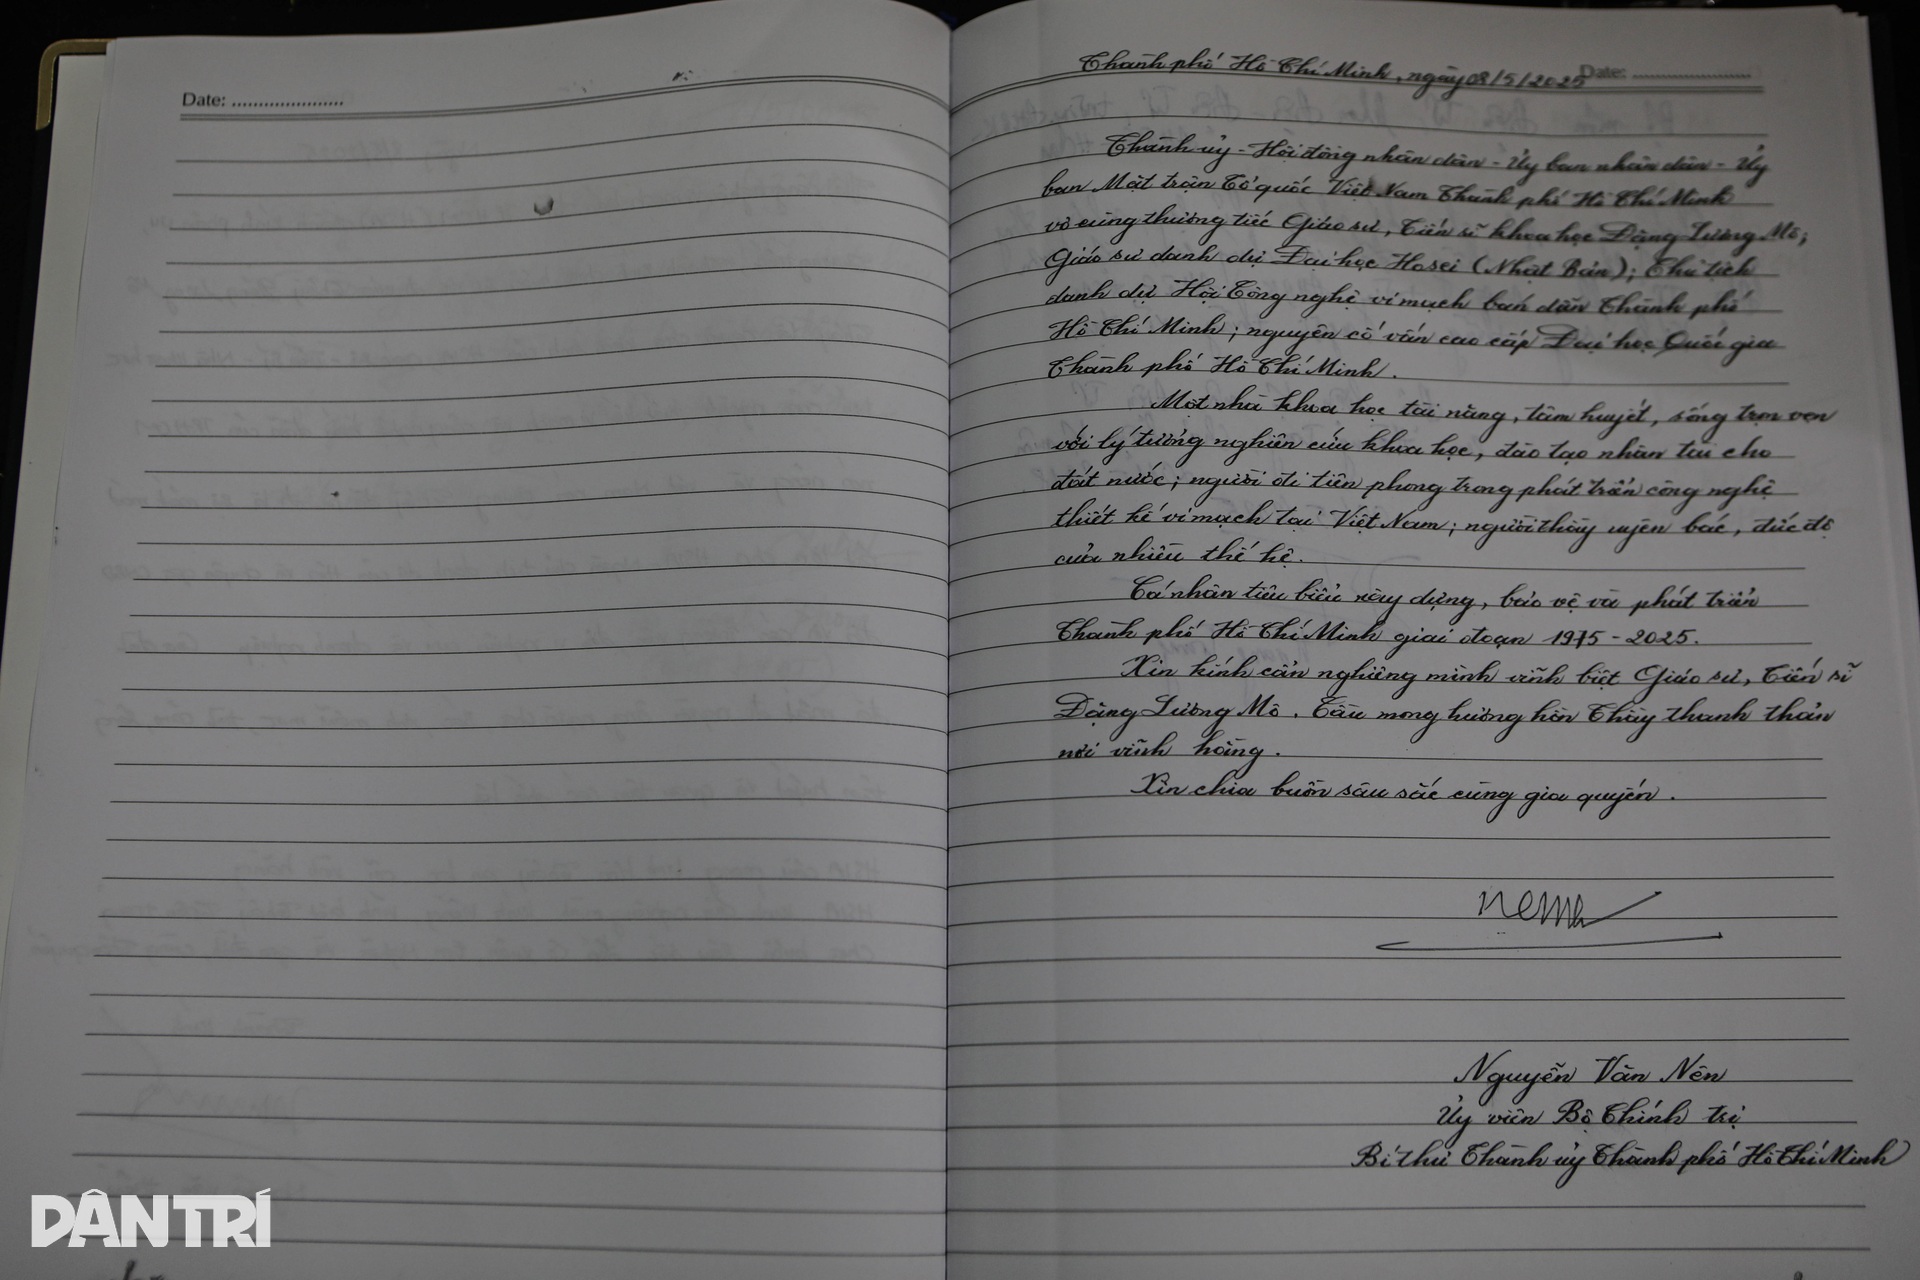 Date: ......................
Thành phố Hồ Chí Minh, ngày 08/5/2025
Date: ......................
Thành ủy - Hội đồng nhân dân - Ủy ban nhân dân - Ủy
ban Mặt trận Tổ quốc Việt Nam Thành phố Hồ Chí Minh
vô cùng thương tiếc Giáo sư, Tiến sĩ khoa học Đặng Lương Mô;
Giáo sư danh dự Đại học Hosei (Nhật Bản); Chủ tịch
danh dự Hội Công nghệ vi mạch bán dẫn Thành phố
Hồ Chí Minh; nguyên cố vấn cao cấp Đại học Quốc gia
Thành phố Hồ Chí Minh.
Một nhà khoa học tài năng, tâm huyết, sống trọn vẹn
với lý tưởng nghiên cứu khoa học, đào tạo nhân tài cho
đất nước; người đi tiên phong trong phát triển công nghệ
thiết kế vi mạch tại Việt Nam; người thầy uyên bác, đức độ
của nhiều thế hệ.
Cá nhân tiêu biểu xây dựng, bảo vệ và phát triển
Thành phố Hồ Chí Minh giai đoạn 1975 - 2025.
Xin kính cẩn nghiêng mình vĩnh biệt Giáo sư, Tiến sĩ
Đặng Lương Mô. Cầu mong hương hồn Thầy thanh thản
nơi vĩnh hằng.
Xin chia buồn sâu sắc cùng gia quyến.
Nguyễn Văn Nên
Ủy viên Bộ Chính trị
Bí thư Thành ủy Thành phố Hồ Chí Minh
DÂN TRÍ